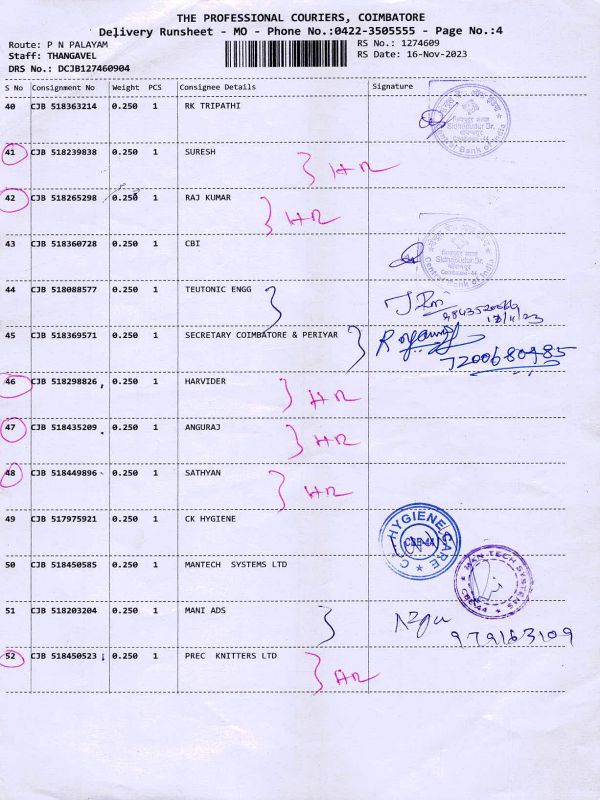 THE PROFESSIONAL COURIERS, COIMBATORE
Delivery Runsheet - MO - Phone No.:0422-3505555 - Page No.:4
Route: P N PALAYAM RS No.: 1274609
Staff: THANGAVEL RS Date: 16-Nov-2023
DRS No.: DCJB127460904
S No Consignment No Weight PCS Consignee Details Signature
40 CJB 518363214 0.250 1 RK TRIPATHI
Sidhapudur Br.
Central Bank of India
41 CJB 518239838 0.250 1 SURESH
HR
42 CJB 518265298 0.250 1 RAJ KUMAR
HR
43 CJB 518360728 0.250 1 CBI
Sidhapudur Br.
Coimbatore-44
Central Bank of India
44 CJB 518088577 0.250 1 TEUTONIC ENGG
45 CJB 518369571 0.250 1 SECRETARY COIMBATORE & PERIYAR
7200680985
46 CJB 518298826 0.250 1 HARVIDER
HR
47 CJB 518435209 0.250 1 ANGURAJ
HR
48 CJB 518449896 0.250 1 SATHYAN
HR
49 CJB 517975921 0.250 1 CK HYGIENE
HYGIENE CARE
CBE-44
50 CJB 518450585 0.250 1 MANTECH SYSTEMS LTD
MAN TECH SYSTEMS
CBE-44
51 CJB 518203204 0.250 1 MANI ADS
979163109
52 CJB 518450523 0.250 1 PREC KNITTERS LTD
HR